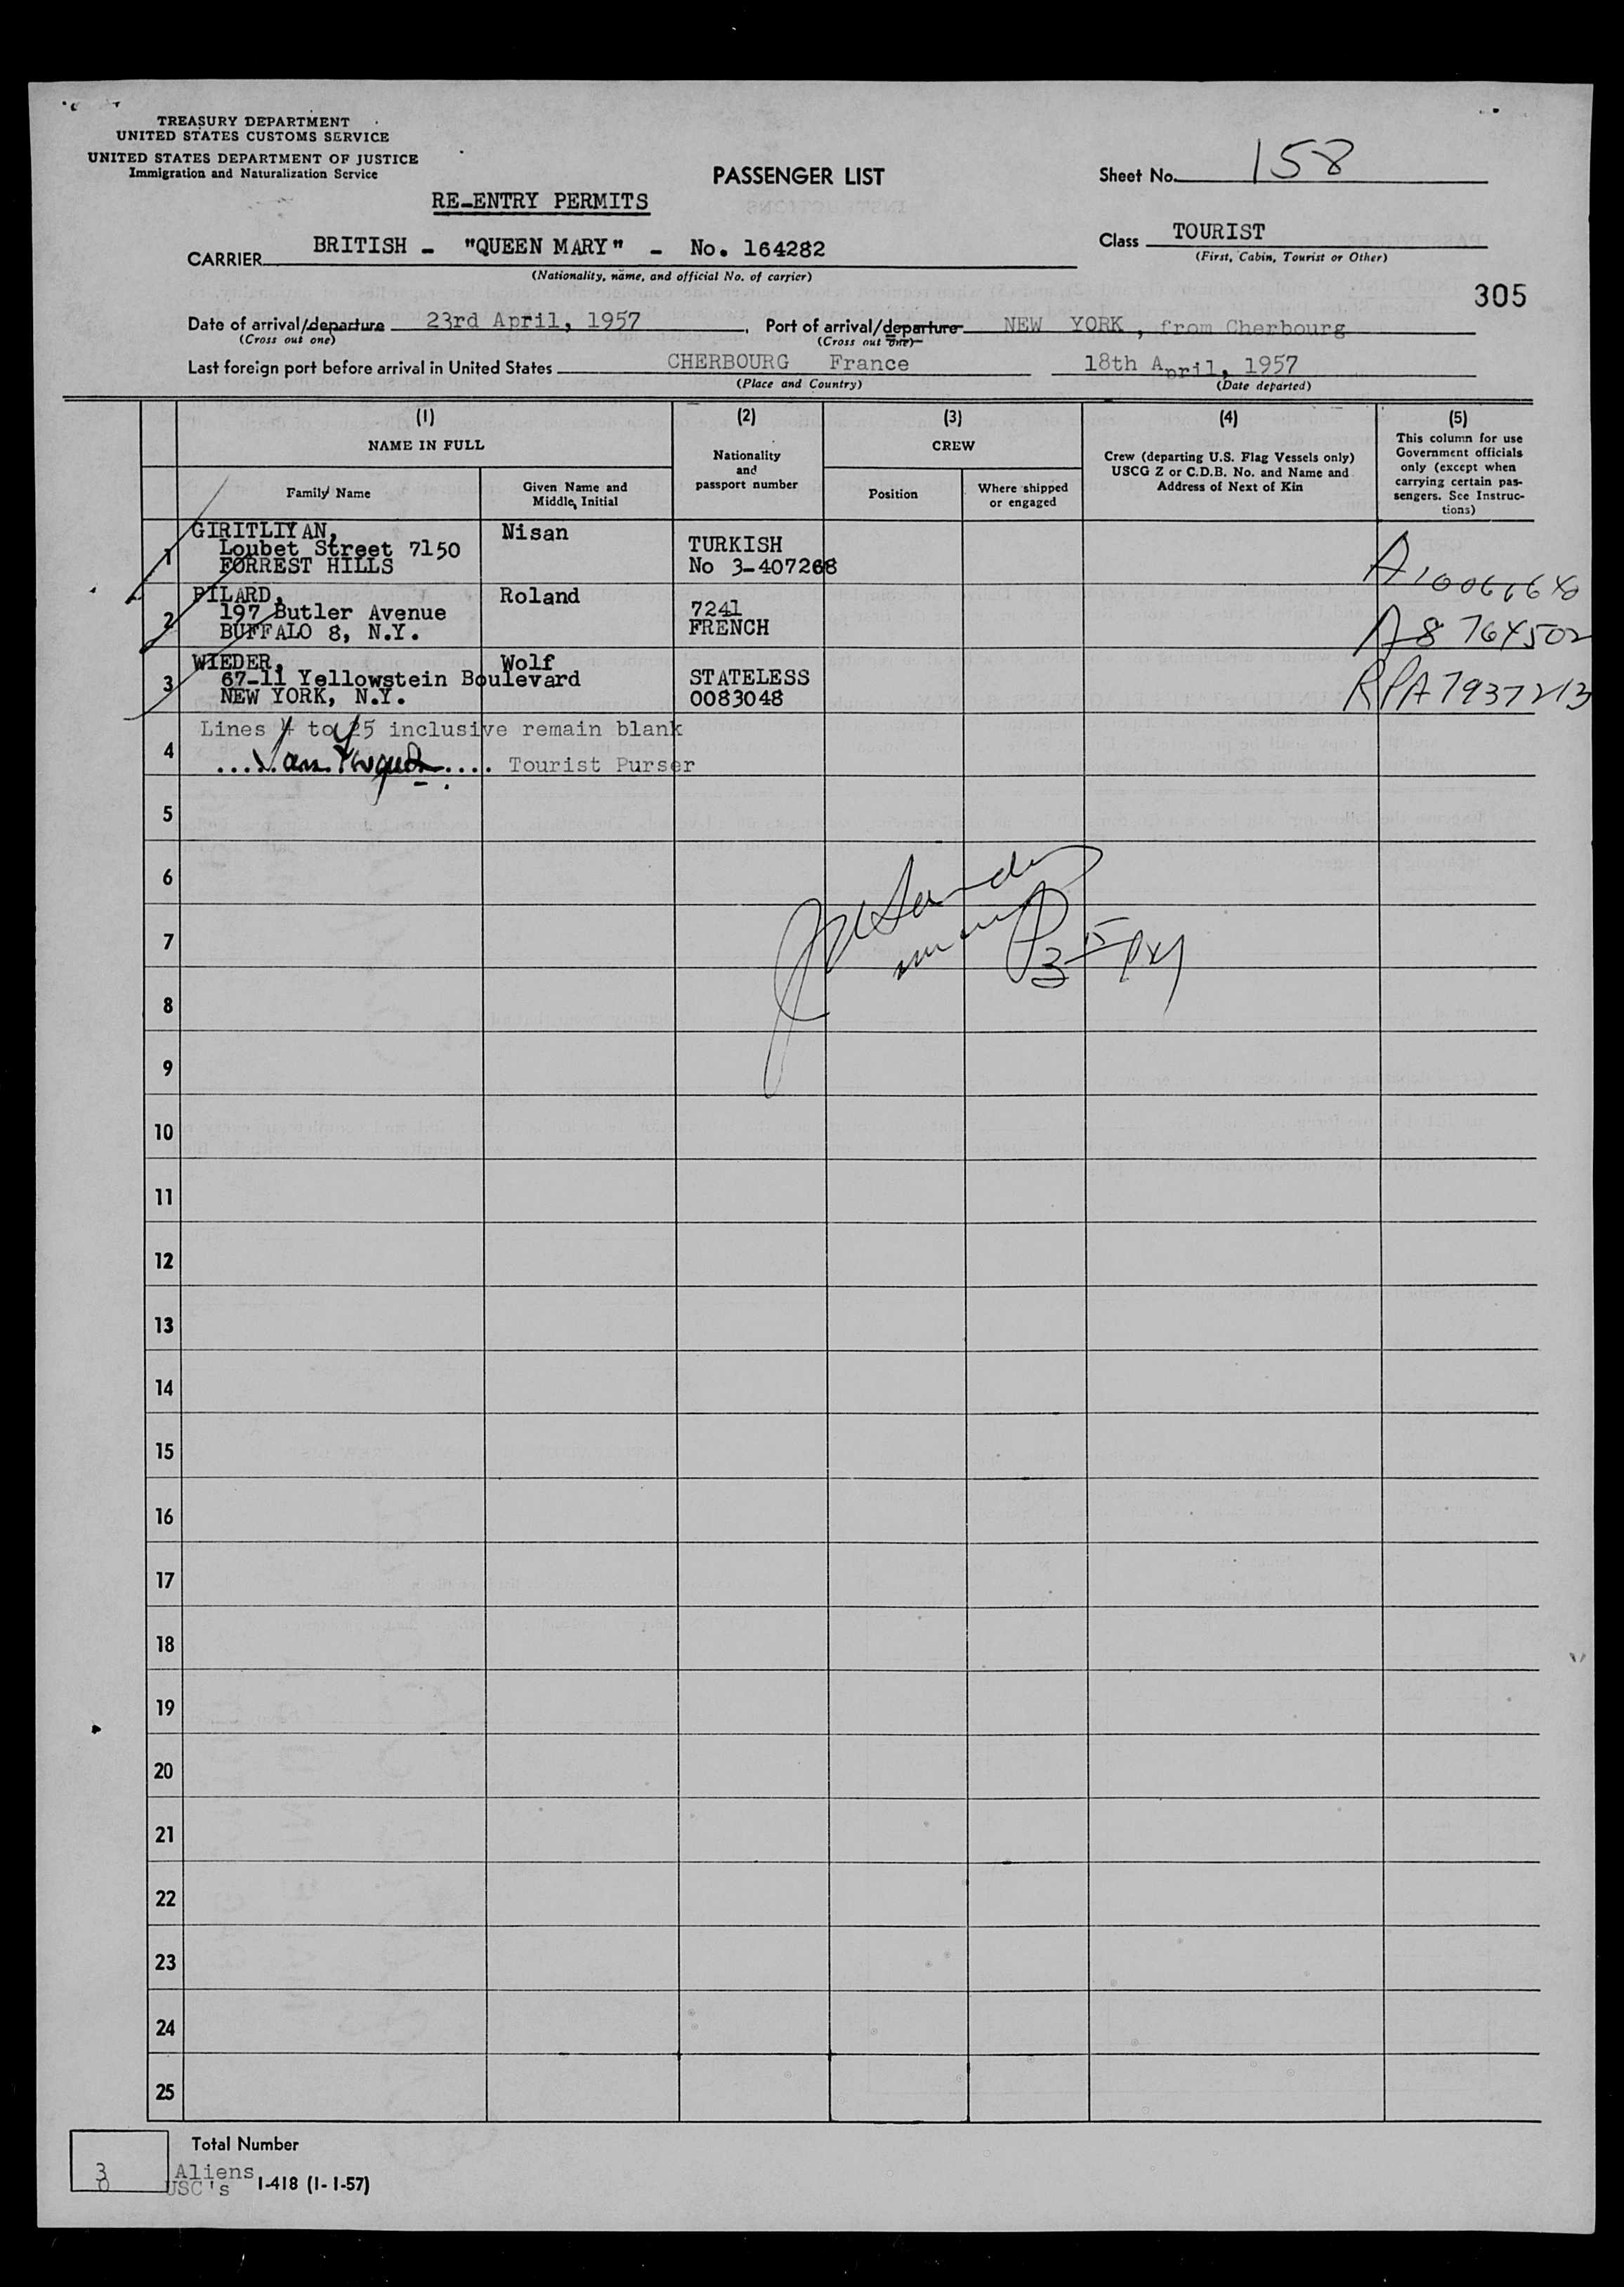 TREASURY DEPARTMENT
UNITED STATES CUSTOMS SERVICE
UNITED STATES DEPARTMENT OF JUSTICE
Immigration and Naturalization Service
PASSENGER LIST
Sheet No. 158
RE-ENTRY PERMITS
CARRIER BRITISH - "QUEEN MARY" - No. 164282
(Nationality, name, and official No. of carrier)
Class TOURIST
(First, Cabin, Tourist or Other)
305
Date of arrival/departure 23rd April, 1957, Port of arrival/departure NEW YORK, from Cherbourg
(Cross out one) (Cross out one)
Last foreign port before arrival in United States CHERBOURG France 18th April, 1957
(Place and Country) (Date departed)
(1)
NAME IN FULL
Family Name
Given Name and
Middle Initial
(2)
Nationality
and
passport number
(3)
CREW
Position
Where shipped
or engaged
(4)
Crew (departing U.S. Flag Vessels only)
USCG Z or C.D.B. No. and Name and
Address of Next of Kin
(5)
This column for use
Government officials
only (except when
carrying certain pas-
sengers. See Instruc-
tions)
1
GIRITLIYAN, Nisan
Loubet Street 7150 TURKISH
FORREST HILLS No 3-407268
2
PILARD, Roland
197 Butler Avenue 7241
BUFFALO 8, N.Y. FRENCH
A8 764502
3
WIEDER, Wolf
67-11 Yellowstein Boulevard STATELESS
NEW YORK, N.Y. 0083048
RPA 7937213
4
Lines 4 to 25 inclusive remain blank
Tourist Purser
5
6
7
8
9
10
11
12
13
14
15
16
17
18
19
20
21
22
23
24
25
Total Number
3 Aliens
0 USC's
I-418 (1-1-57)